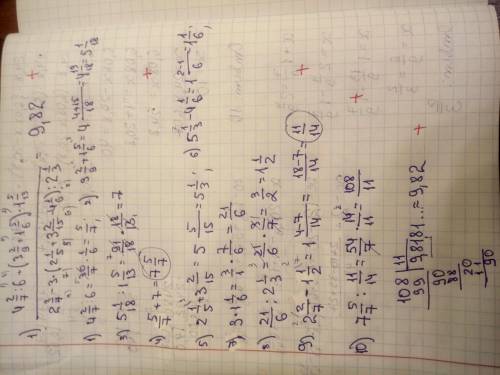 1) (4 2/7 : 6 + (3 2/9 + 1 5/6) · 1 5/13) / (2 2/7 - 3 · (2 1/5 + 3 2/15 - 4 1/6) : 2 1/3) = 9,82 +
1) 4 2/7 : 6 = 30/7 · 1/6 = 5/7; 2) 3 2/9 + 1 5/6 = 4 (4+15)/18 = 4 19/18 = 5 1/18
3) 5 1/18 : 1 5/13 = 91/18 · 18/13 = 7
4) 5/7 + 7 = 7 5/7 +
5) 2 1/5 + 3 2/15 = 5 5/15 = 5 1/3; 6) 5 1/3 - 4 1/6 = 1 (2-1)/6 = 1 1/6;
7) 3 + 1 1/6 = 3/1 · 7/6 = 21/6
8) 21/6 : 2 1/3 = 21/6 · 3/7 = 3/2 = 1 1/2
9) 2 2/7 - 1 1/2 = 1 (4-7)/14 = (18-7)/14 = 11/14 +
10) 7 5/7 : 11/14 = 54/7 · 14/11 = 108/11
108 | 11
99 9,8181... = 9,82 +
90
88
20
1
90